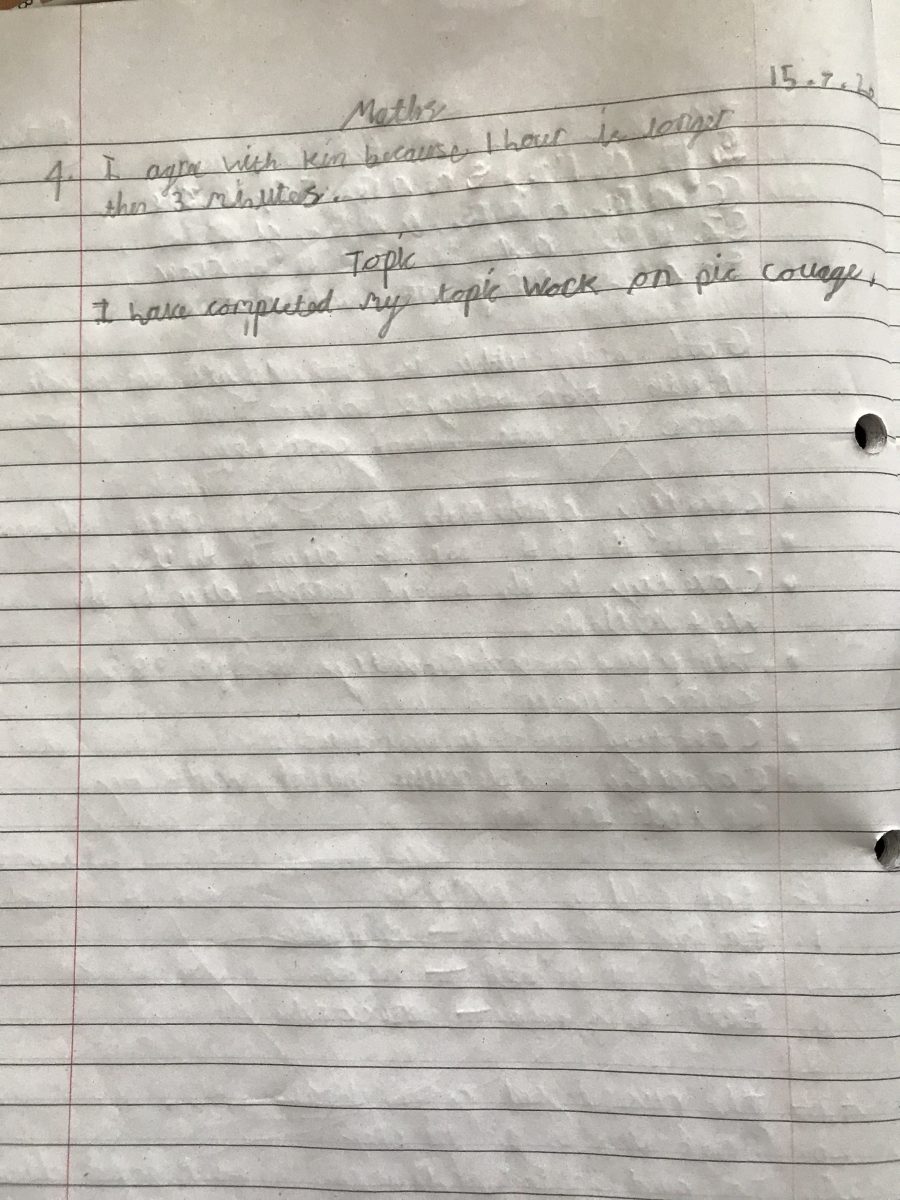 15.7.20
Maths
4. I agree with kim because 1 hour is longer
then 3 minutes.
Topic
I have completed my topic work on pic collage.